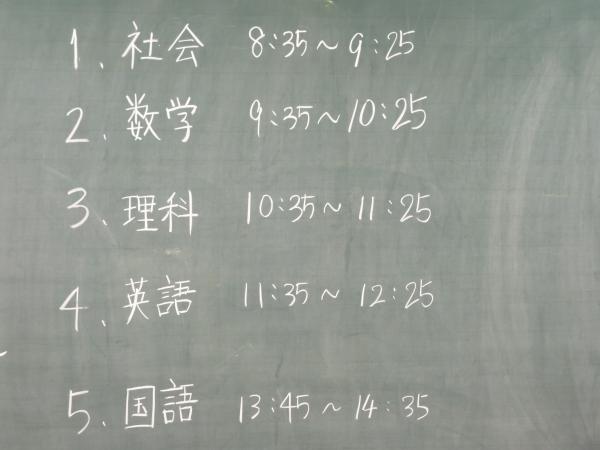 1. 社会 8:35~9:25
2. 数学 9:35~10:25
3. 理科 10:35~11:25
4. 英語 11:35~12:25
5. 国語 13:45~14:35